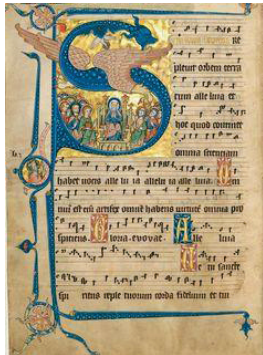 S RE
pleuit orbem terra
rum alle luia et
hoc quod continet
omnia scientiam
habet uocis alle lu ia allelu ia alle luia Om
nium est artifex habens omnia pro
spiciens Gloria euouae Alle luia
Ve ni sancte
spi ritus reple tuorum corda fidelium et tui